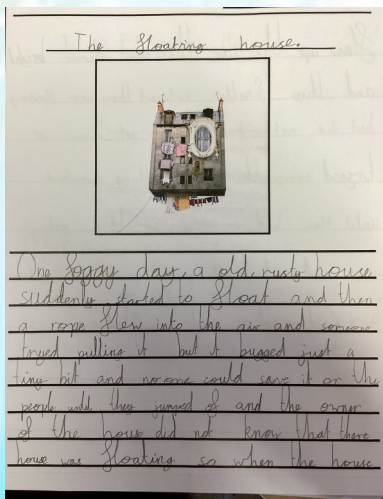 The floating house.
One foggy day, a old, rusty house
suddenly started to float and then
a rope flew into the air and someone
tryed pulling it but it bugged just a
tiny bit and no one could save it or the
people until they jumped of and the owner
of the hous did not know that there
house was floating so when the house